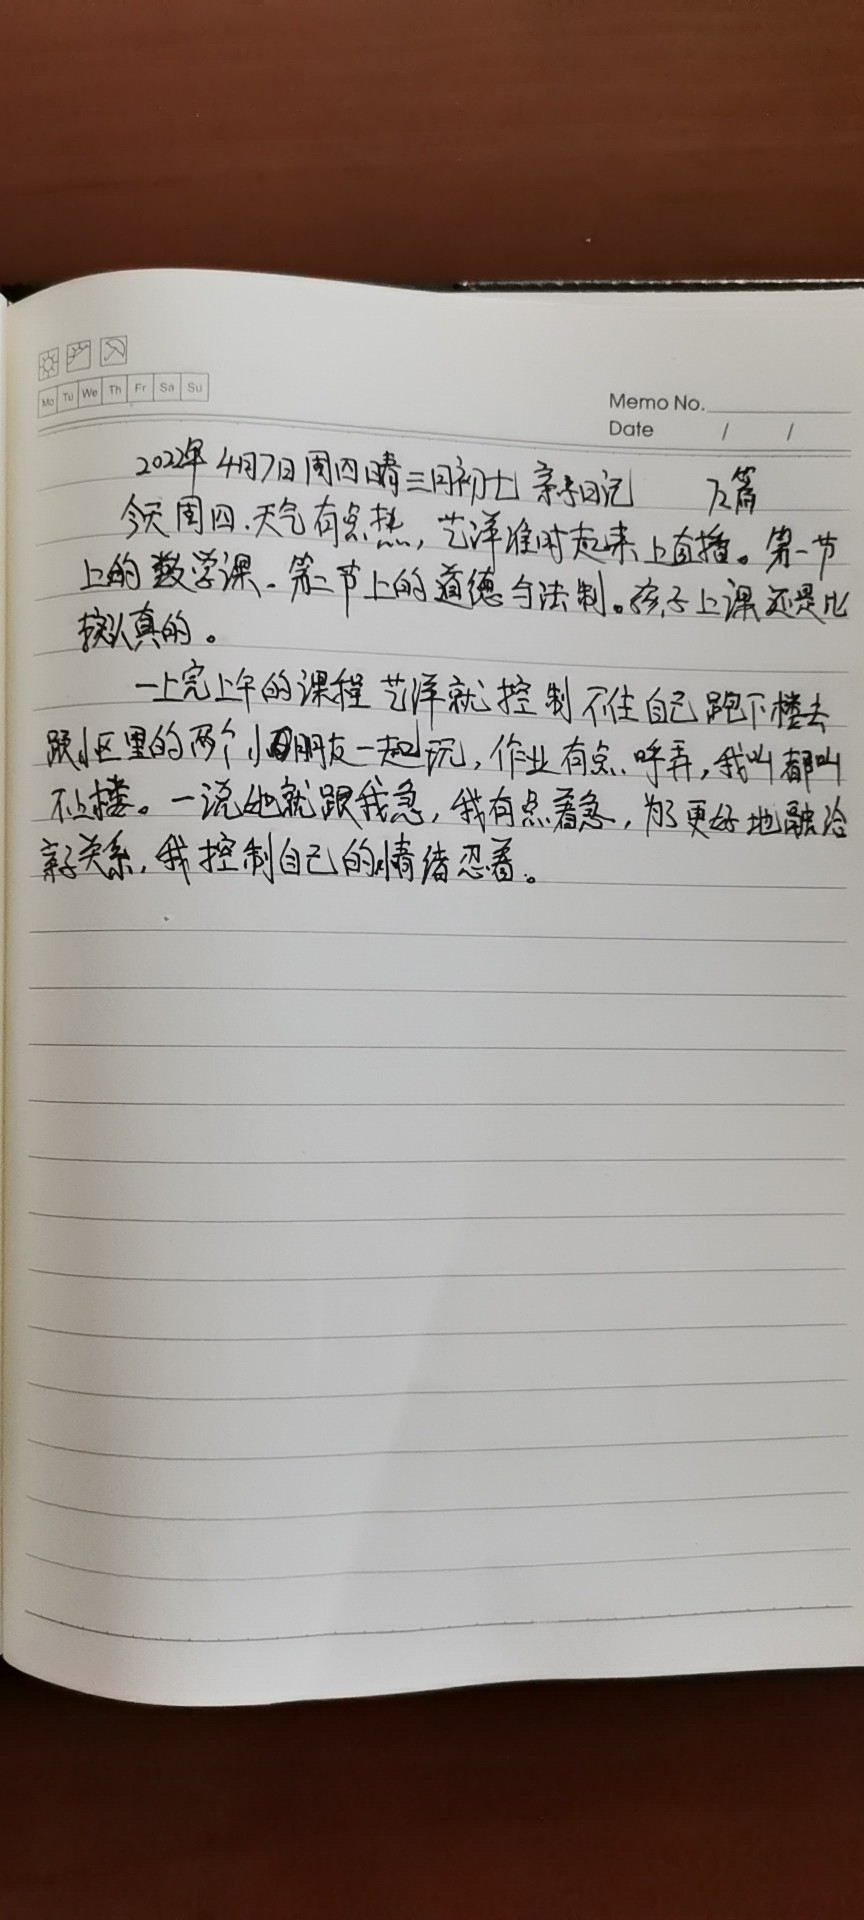 Mo Tu We Th Fr Sa Su
Memo No.
Date / /
2022年4月7日周四晴三月初七 亲子日记 72篇
今天周四.天气有点热,艺洋准时起来上直播。第一节
上的数学课.第二节上的道德与法制。孩子上课还是比
较认真的。
一上完上午的课程艺洋就控制不住自己跑下楼去
跟小区里的两个小朋友一起玩,作业有点呼弄,我叫都叫
不上楼。一说她就跟我急,我有点着急,为了更好地融洽
亲子关系,我控制自己的情绪忍着。